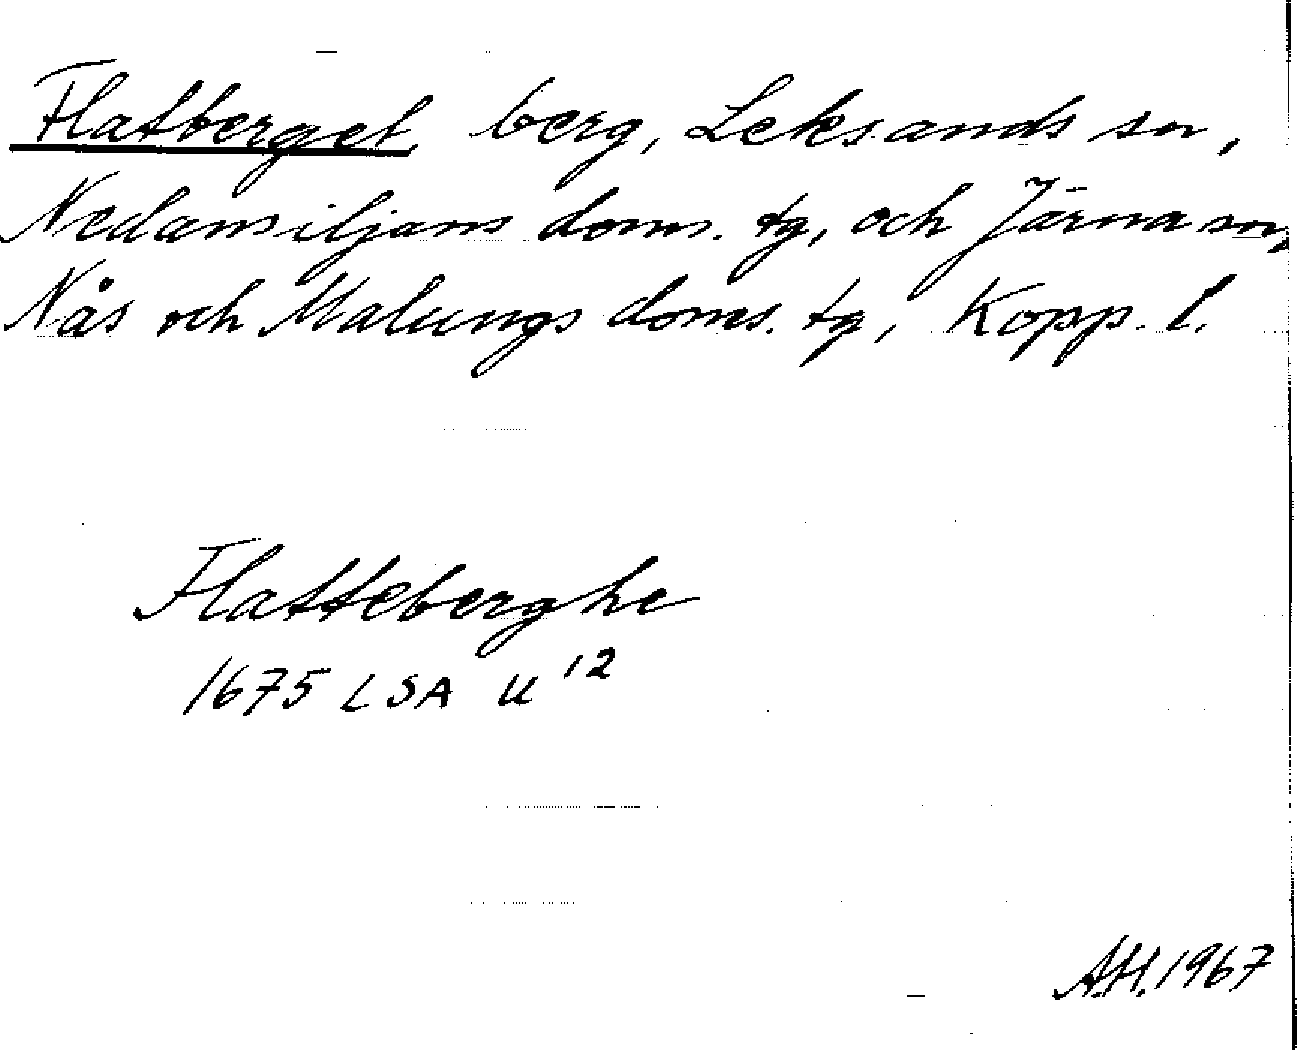 Flatberget, berg, Leksands sn,
Nedansiljans doms. tg, och Järna sn,
Nås och Malungs doms. tg, Kopp. l.
Flatteberghe
1675 LSA U 12
A.H. 1967